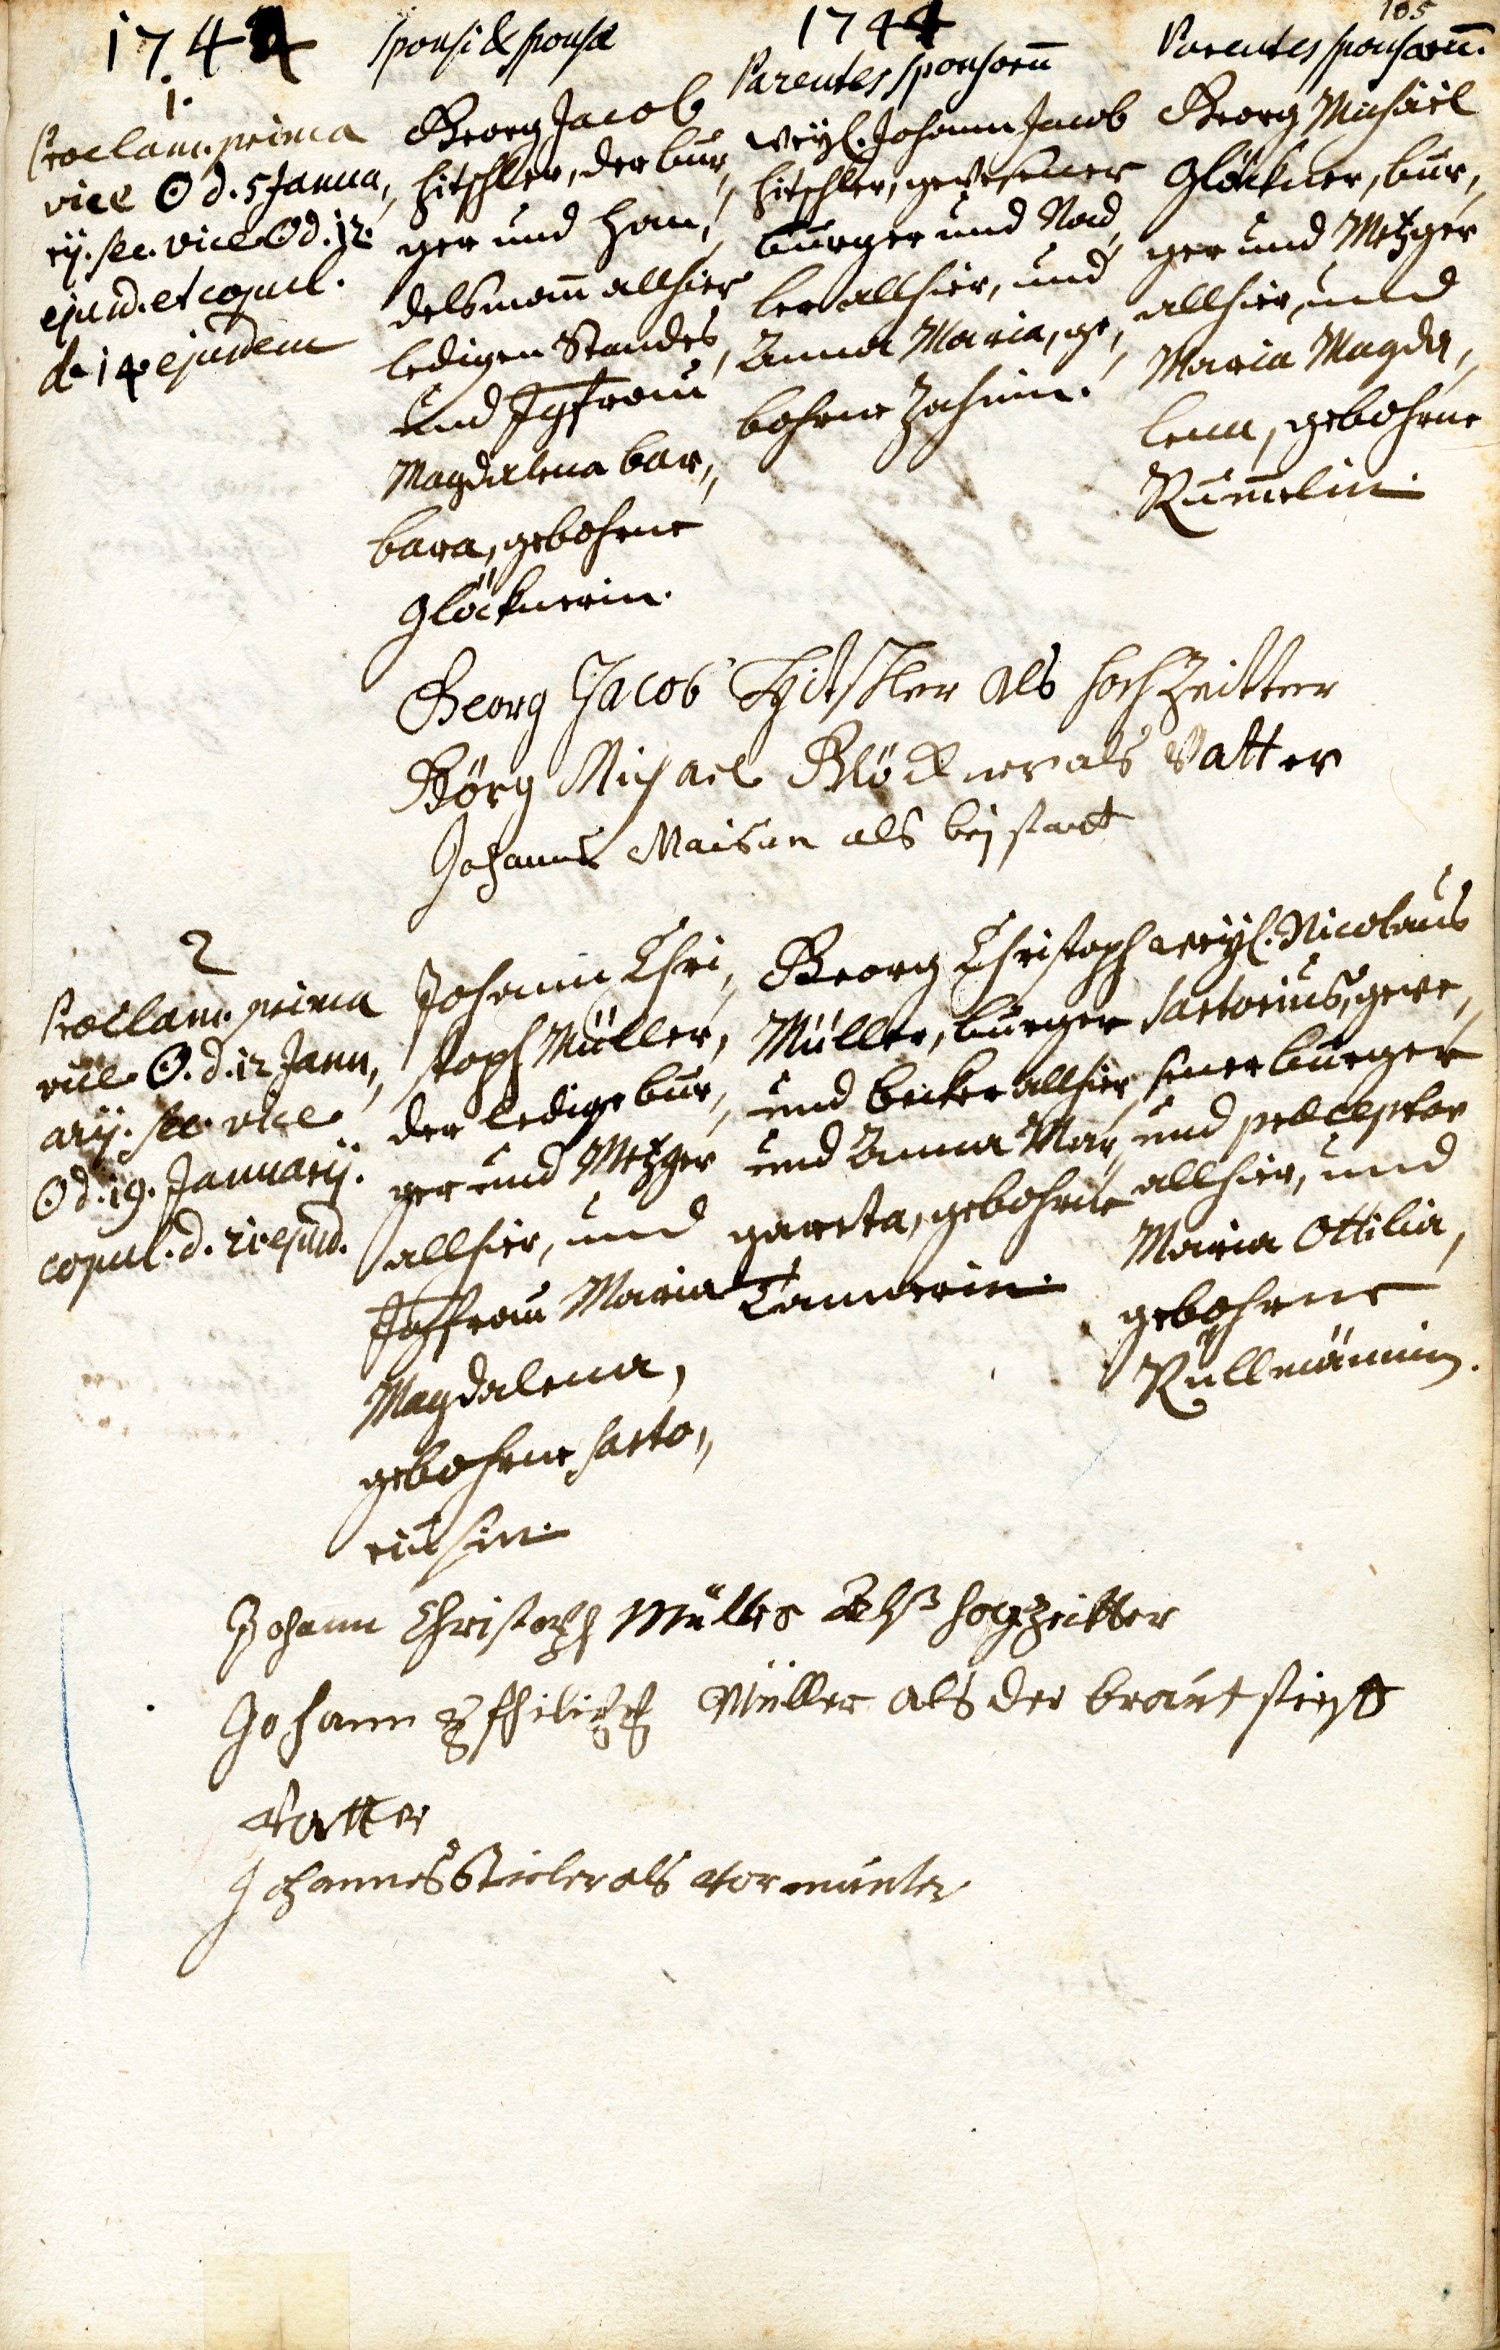 105
1744 sponsi & sponsæ 1744 Parentes sponsorum̄ Parentes sponsarum̄.
1.
Proclam. prima
vice ☉ d. 5 Janua„
rij. sec. vice ☉ d. 12.
ejusd. et copul.
d. 14 ejusdem
Georg Jacob
Hitschler, der bur„
ger und Han„
delsmann̄ allhier
ledigen Standes,
und Jgfrau
Magdalena bar„
bara, gebohrne
Glöcknerin.
weyl. Johann Jacob
Hitschler, gewesener
burger und Nad„
ler allhier, und
Anna Maria, ge„
bohrne Zahnin.
Georg Michäel
Glöckner, bur„
ger und Metzger
allhier, und
Maria Magda„
lena, gebohrne
Rum̄elin.
Georg Jacob Hitschler als hochzeitter
Görg Michael Glöckner als Vatter
Johannes als beistant
2
Proclam. prima
vice ☉. d. 12 Janu„
arij. sec. vice
☉ d. 19. Januarij.
copul. d. 21 ejusd.
Johann Chri„
stoph Müller,
der ledige bur„
ger und Metzger
allhier, und
Jgfrau Maria
Magdalena,
gebohrne Sarto„
riusin.
Georg Christoph
Müller, burger
und becker allhier
und Anna Mar„
gareta, gebohrne
Tannerin.
weyl. Nicolaus
Sartorius, gewe„
sener burger
und præceptor
allhier, und
Maria Ottilia,
gebohrne
Rüllmännin.
Johann Christoph Müller Alß hochzeitter
Johann Philipp Müller als der braut stieff
Vatter
Johannes als Vormünter